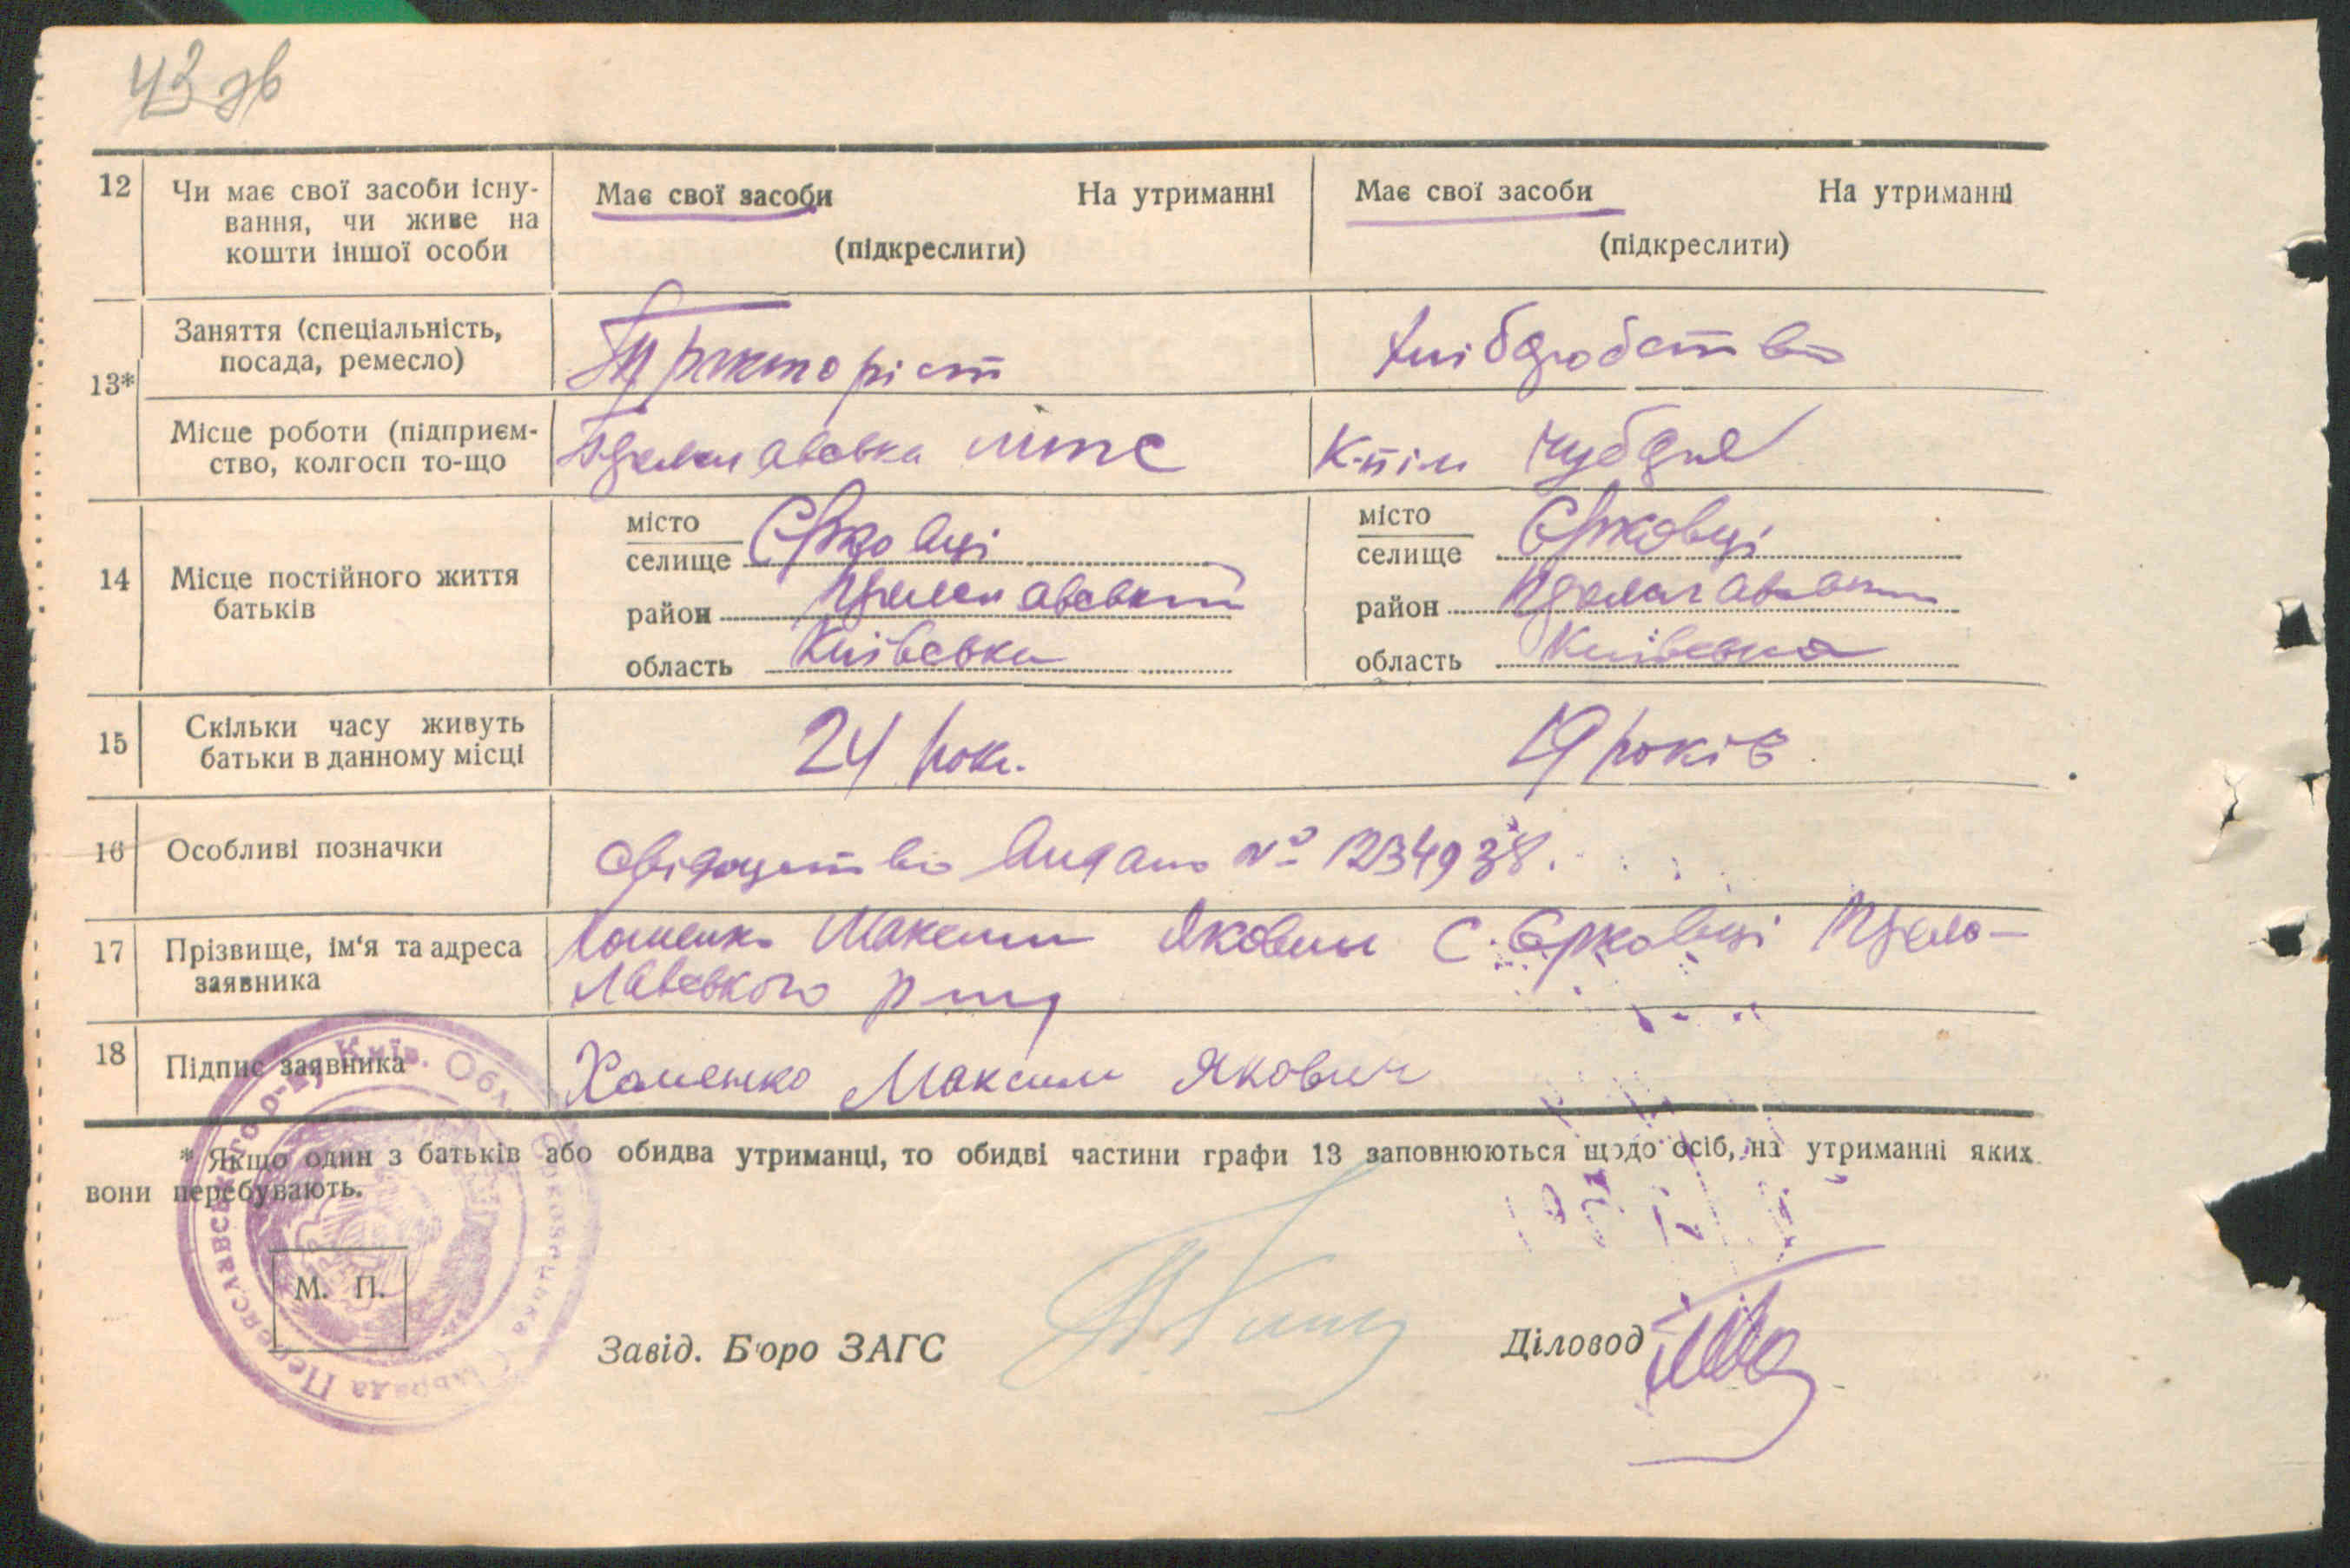 43 зв
12 Чи має свої засоби існу- Має свої засоби На утриманні Має свої засоби На утриманні
вання, чи живе на
кошти іншої особи (підкреслити) (підкреслити)
13* Заняття (спеціальність, Тракторіст Хлібробство
посада, ремесло)
Місце роботи (підприєм- мтс
ство, колгосп то-що К-гіл Чубаря
14 Місце постійного життя
батьків
місто Єрковці місто Єрковці
селище селище
район район
область Київська область Київська
15 Скільки часу живуть 24 роки. 19 років.
батьки в данному місці
16 Особливі позначки Свідоцтво видано № 1234938.
17 Прізвище, ім'я та адреса Хоменко Максим Якович с. Єрковці
заявника р-ну
18 Підпис заявника Хоменко Максим Якович
* Якщо один з батьків або обидва утриманці, то обидві частини графи 13 заповнюються щодо осіб, на утриманні яких
вони перебувають.
М. П.
Завід. Б'юро ЗАГС Діловод